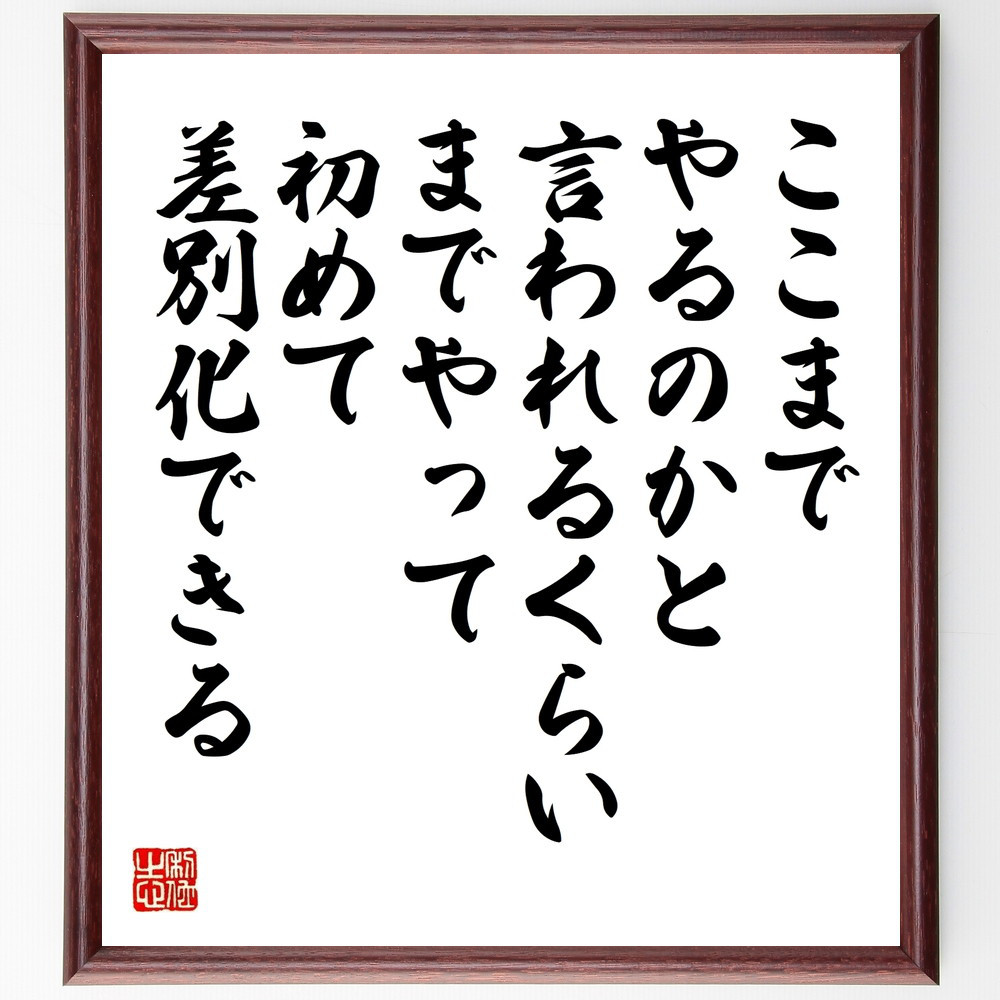 ここまで
やるのかと
言われるくらい
までやって
初めて
差別化できる